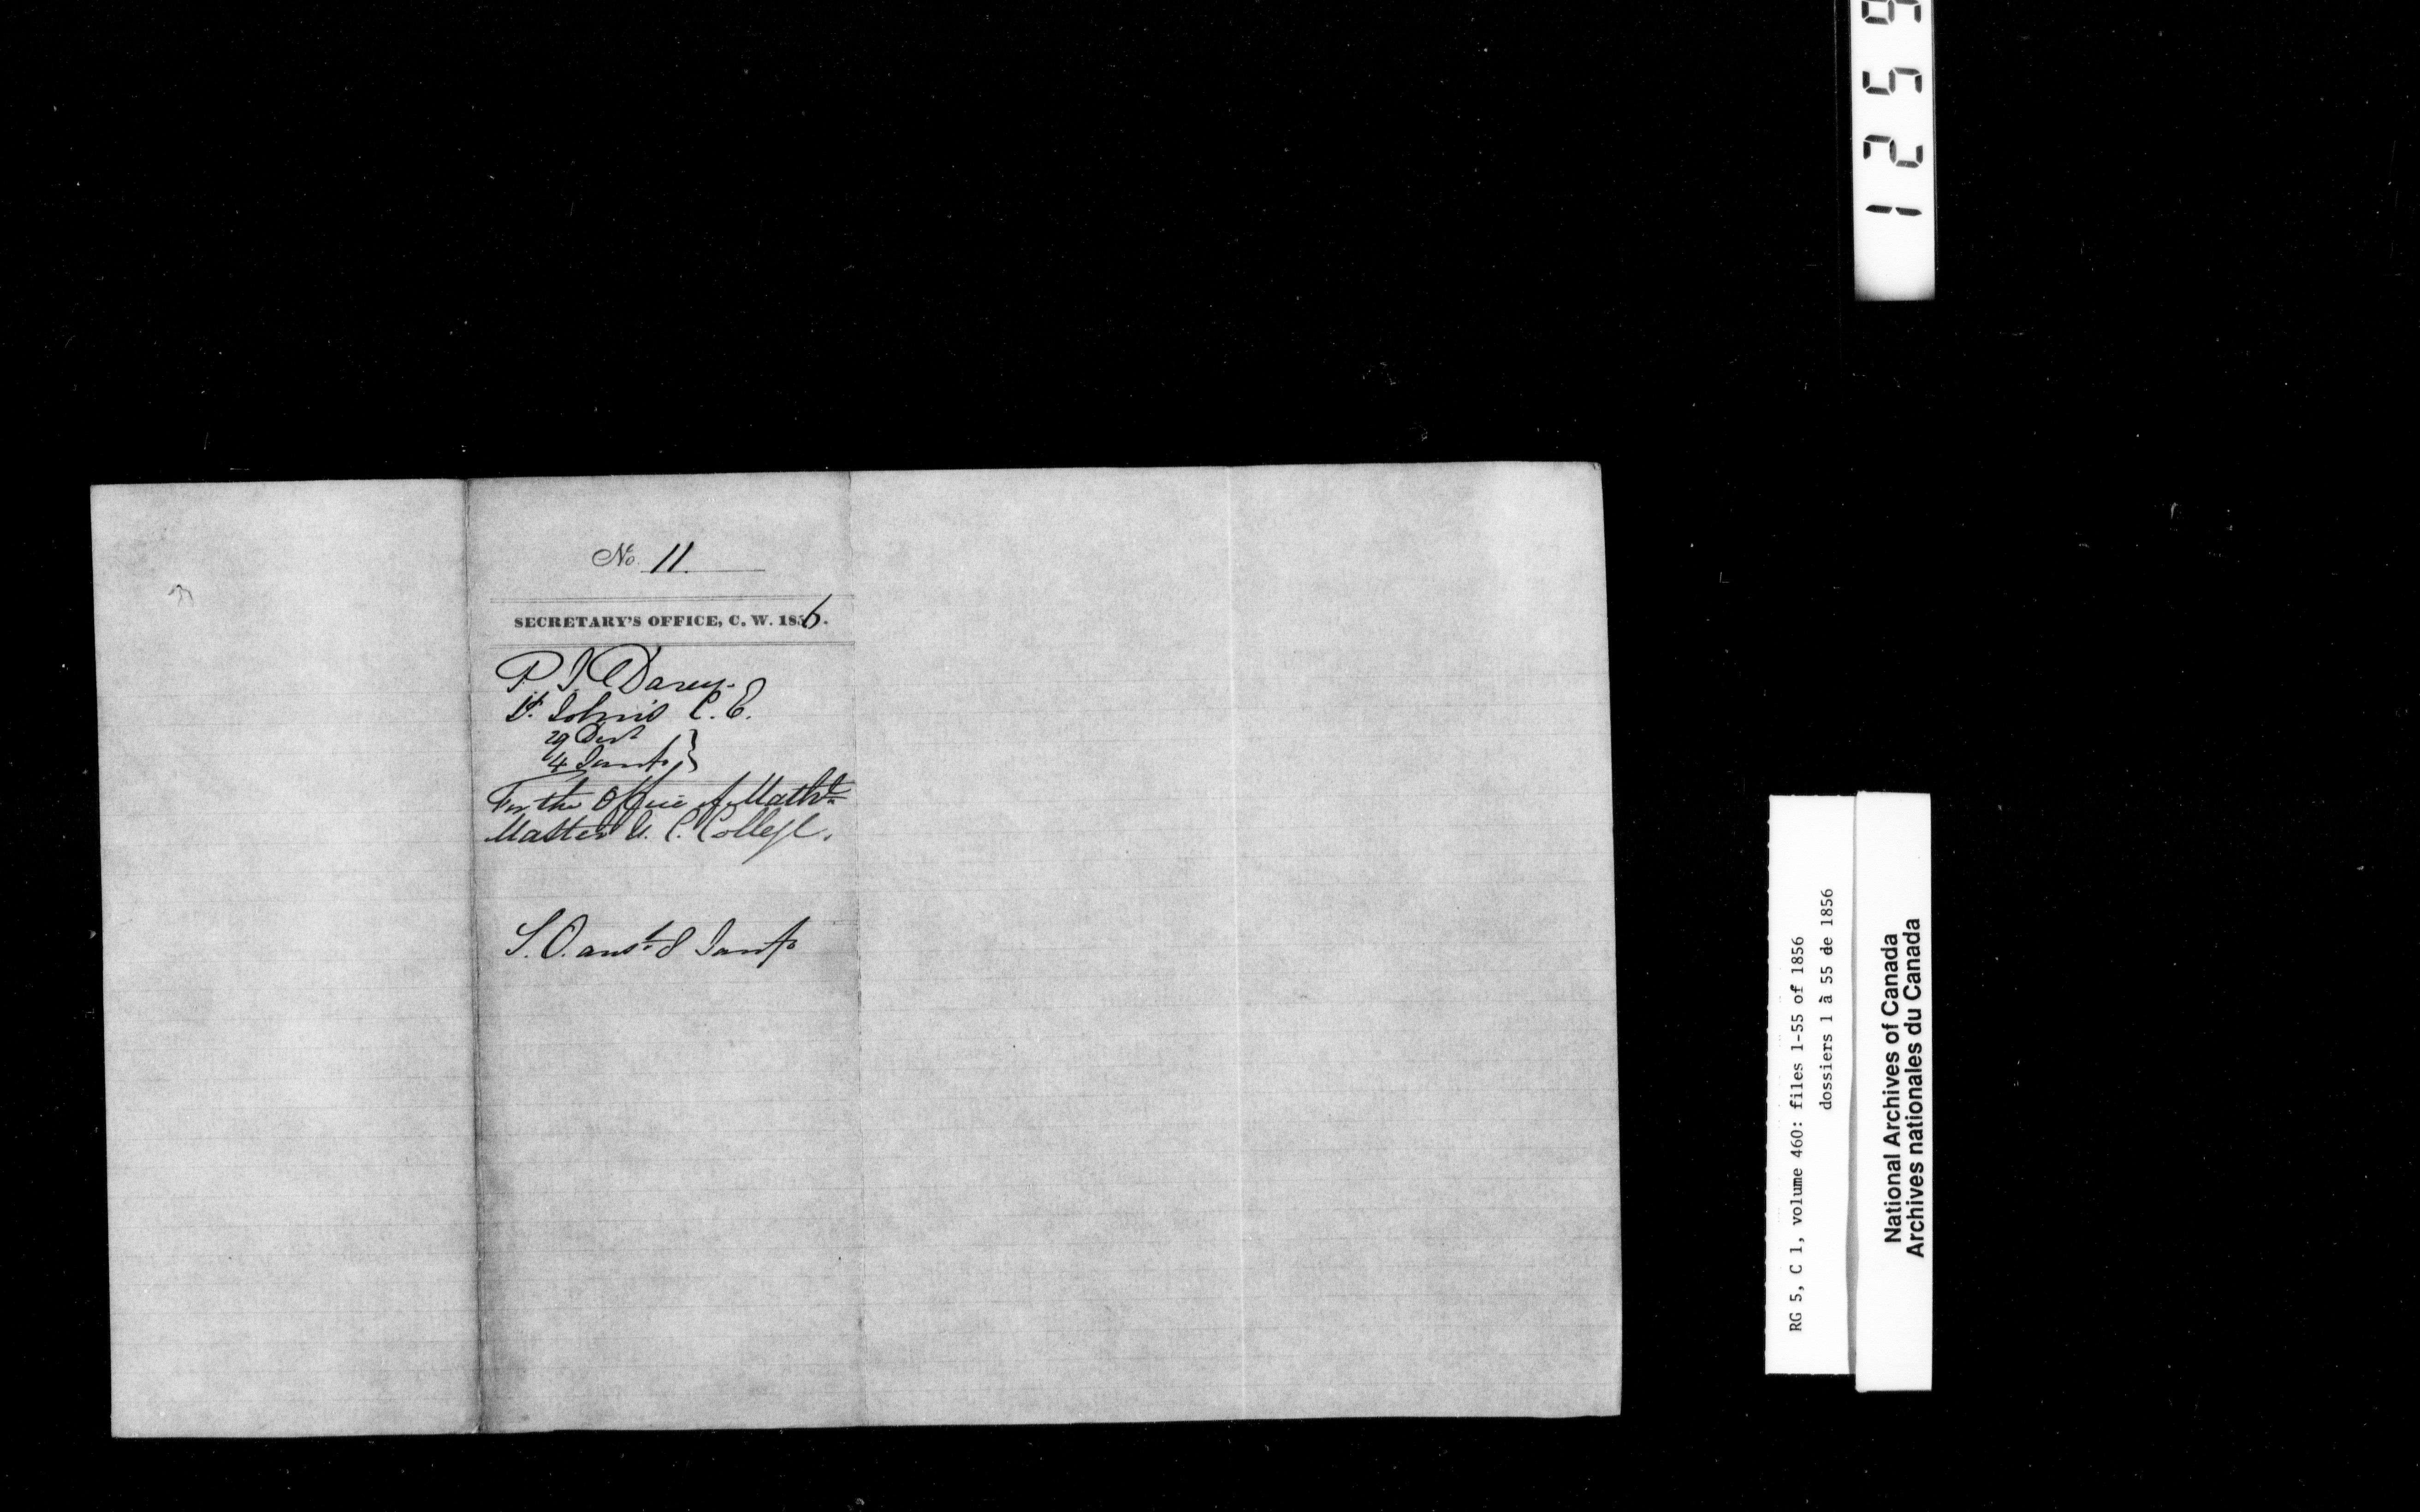 No. 11.
SECRETARY'S OFFICE, C. W. 1856.
P. J. Darey.
St. John's C. E.
29 Decr
4 Jany
For the Office of Math
Master U. C. College.
S. O. ansd 8 Jany
1259
RG 5, C 1, volume 460: files 1-55 of 1856
dossiers 1 à 55 de 1856
National Archives of Canada
Archives nationales du Canada